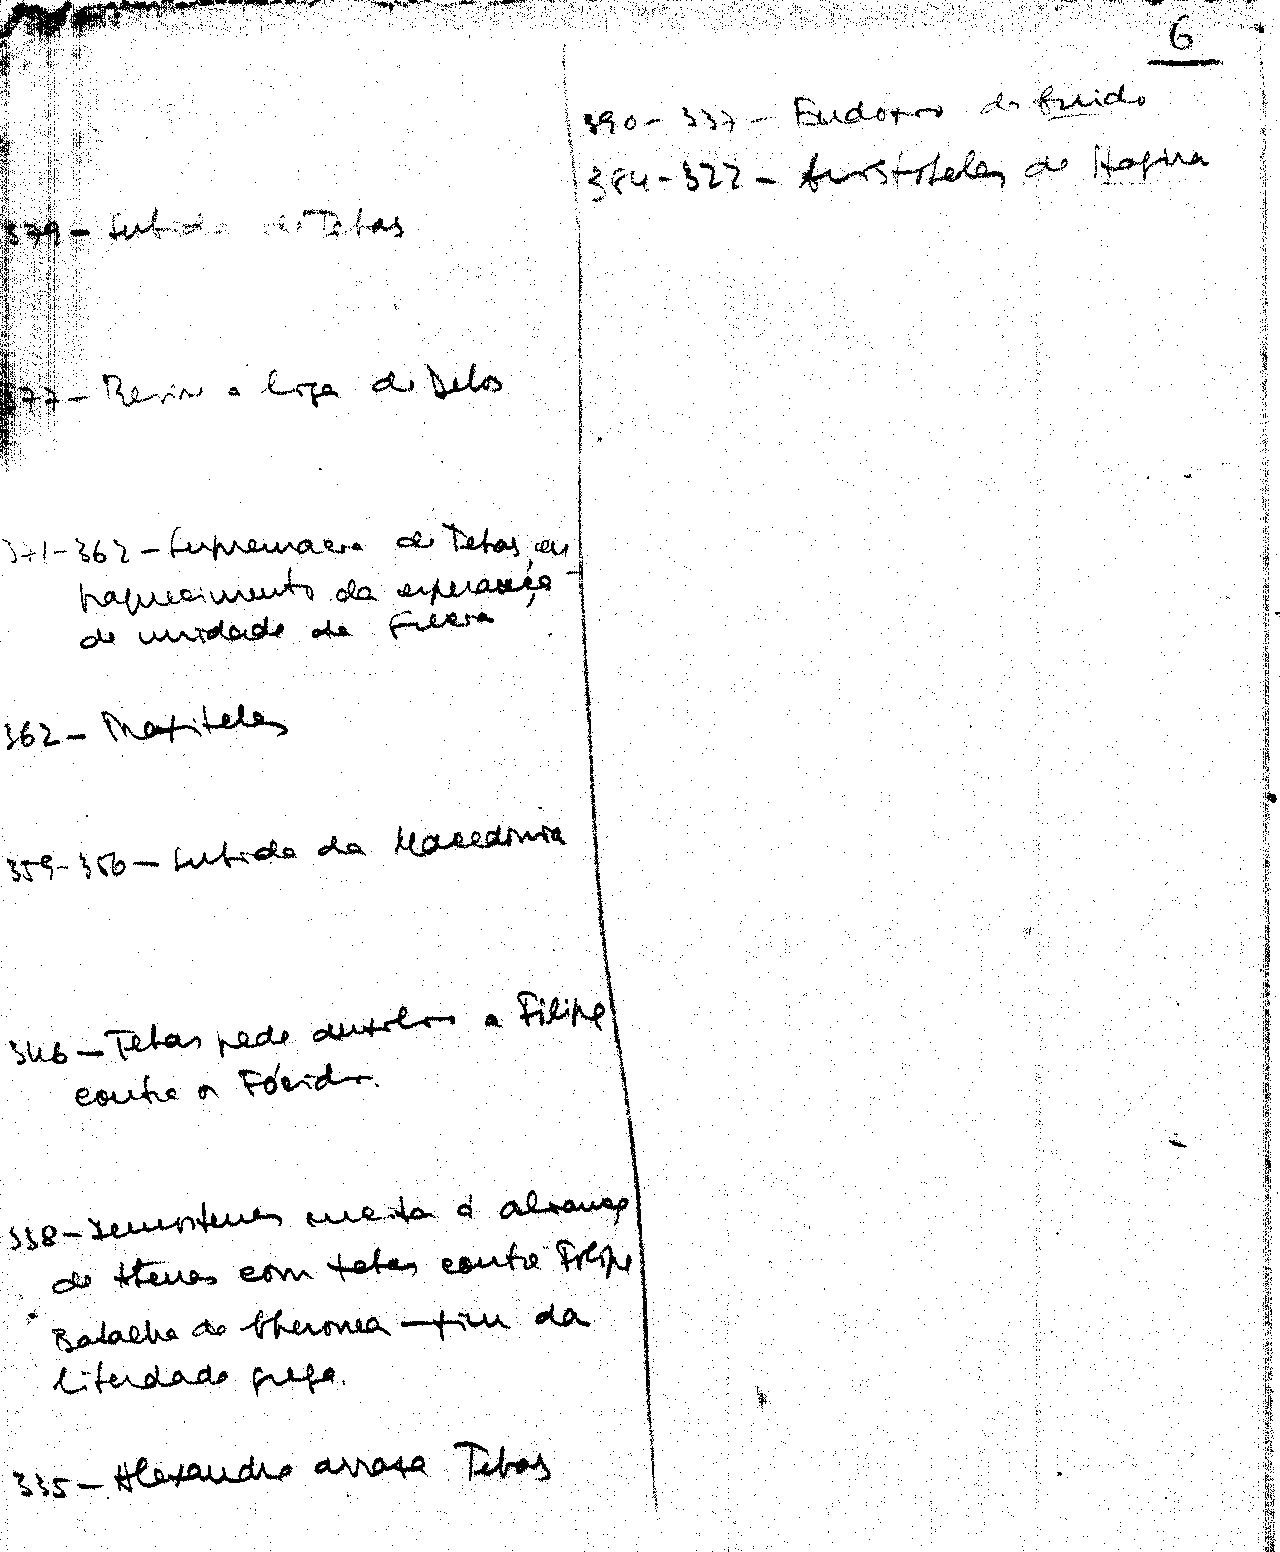 6
390-337- Eudoxo de Cnido
384-322- Aristóteles de Stagira
379- Subida de Tebas
377- Revive a liga de Delos
371-362- Supremacia de Tebas, en
fraquecimento da esperança
de unidade da Grécia
362- Praxiteles
359-356- Subida da Macedonia
346- Tebas pede auxilio a Filipe
contra a Fócida.
338- Demostenes incita à aliança
de Atenas com Tebas contra Filipe
Batalha de Cheronea - Fim da
liberdade grega.
335- Alexandre arrasa Tebas